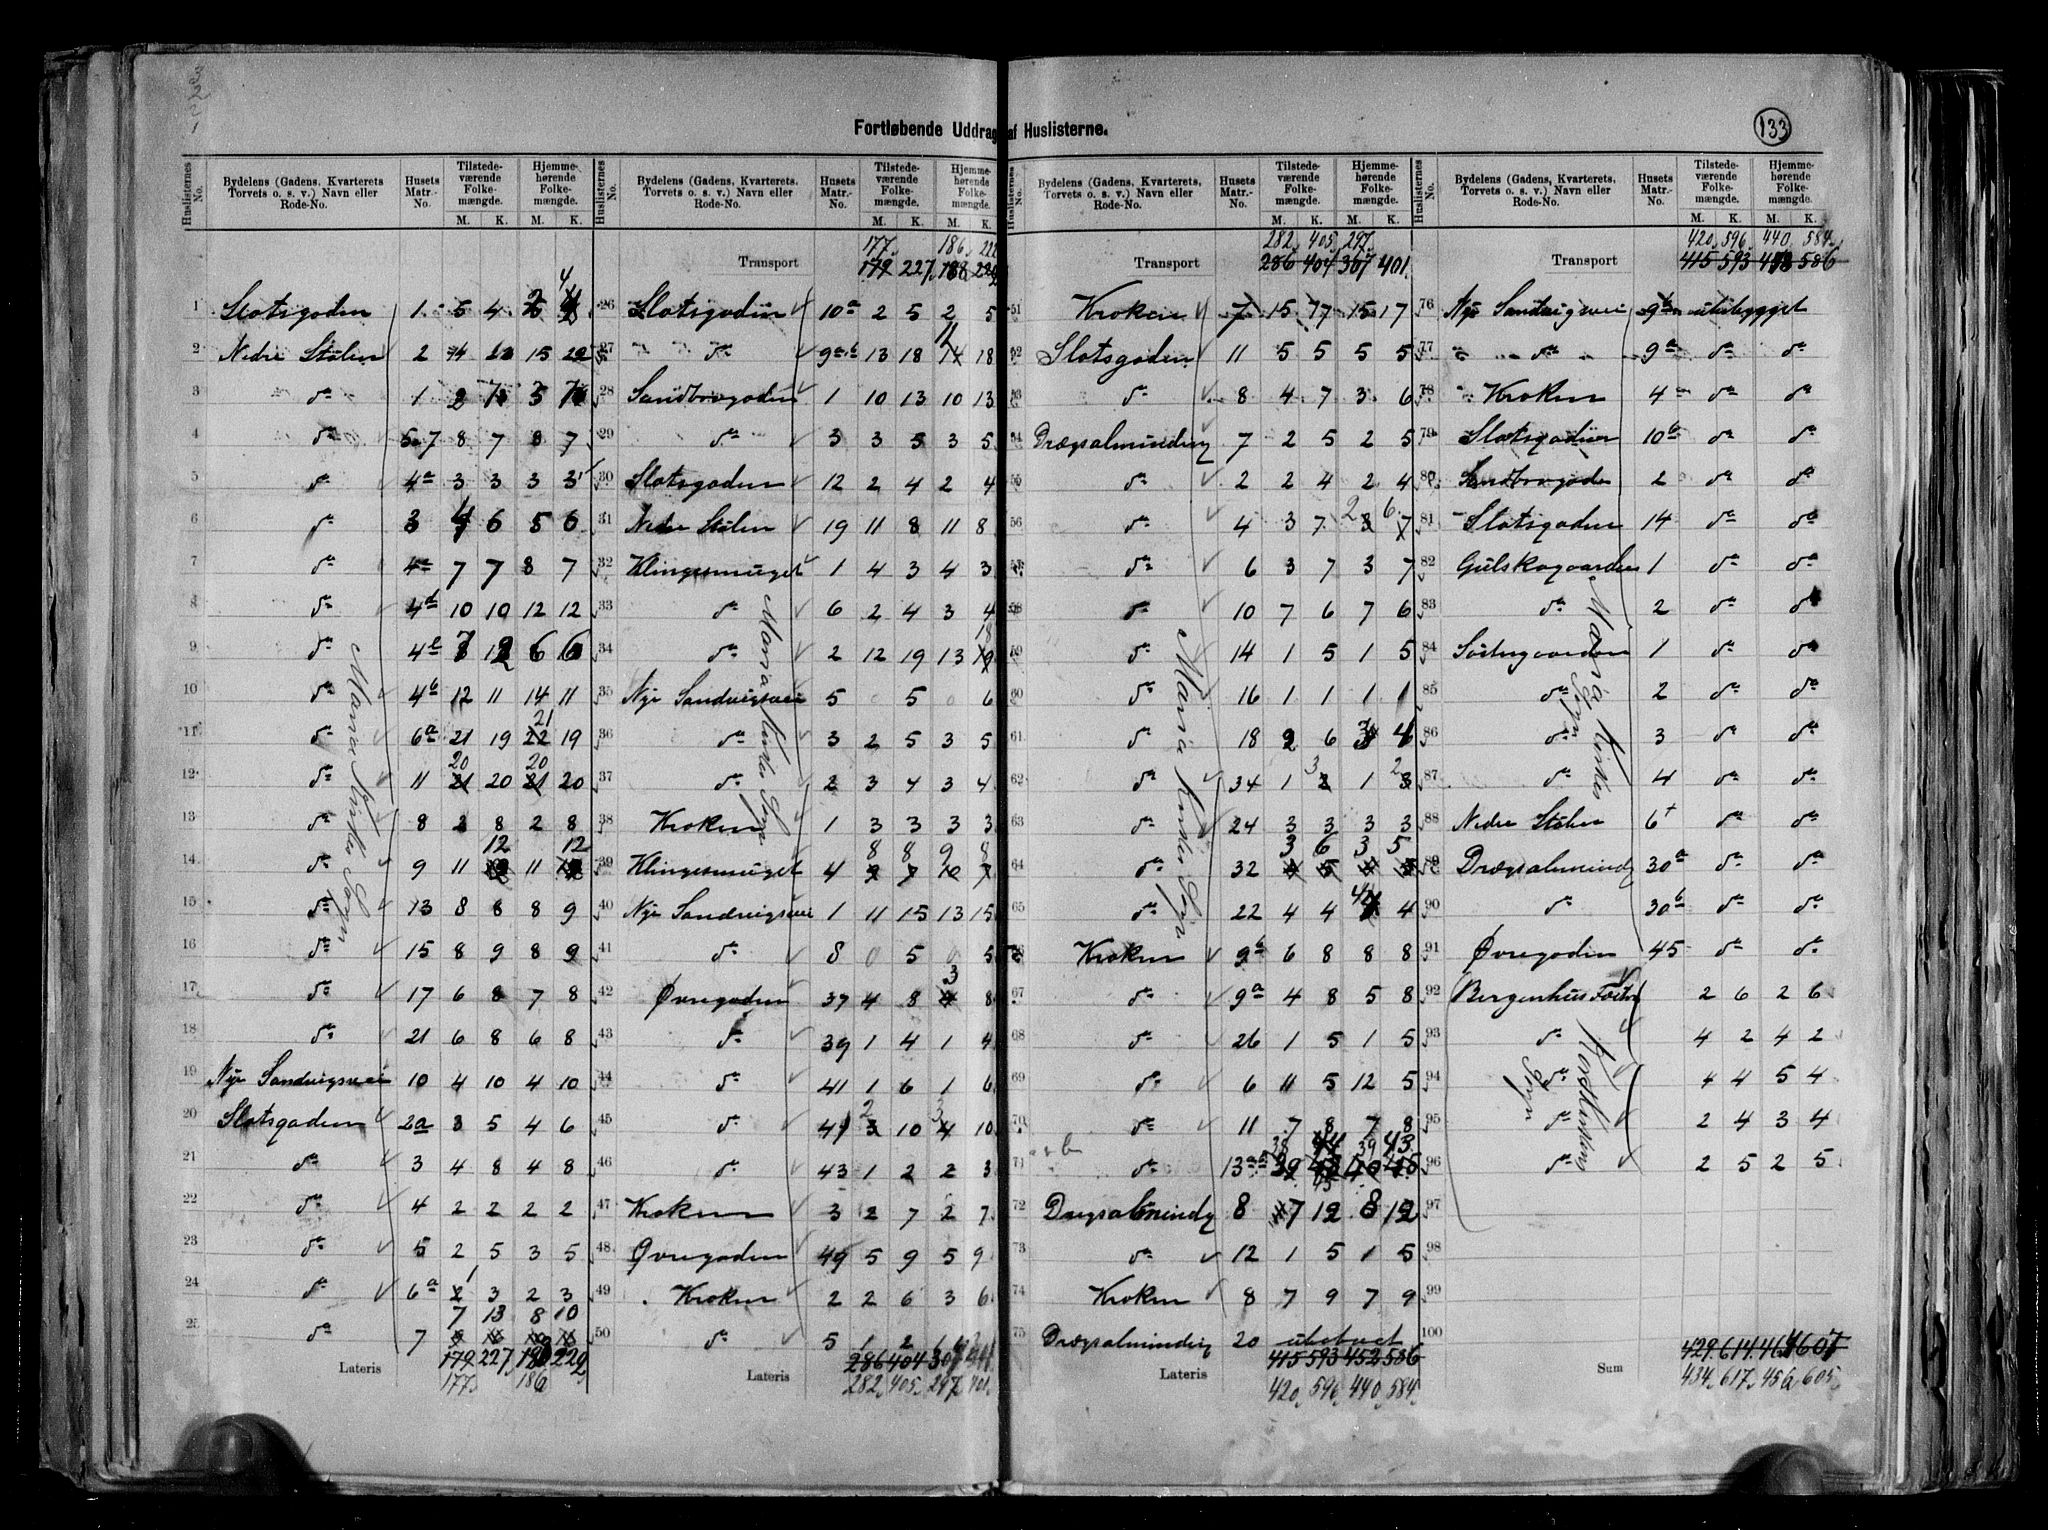 Fortløbende Uddrag af Huslisterne.
133
Huslisternes No. Bydelens (Gadens, Kvarterets, Torvets o. s. v.) Navn eller Rode-No. Husets Matr.-No. Tilstedeværende Folkemængde. M. K. Hjemmehørende Folkemængde. M. K.
1 Slotsgaden 1 5 4
2 Nedre Stølen 2 15 22
3 do 1
4 do 5-7 8 7 8 7
5 do 4a 3 3 3 3
6 do 3 4 6 5 6
7 do 7 7 8 7
8 do 4d 10 10 12 12
9 do 7 12 6 6
10 do 4b 12 11 14 11
11 do 6a 21 19 21 19
12 do 11 20 20 20 20
13 do 8 8 2 8
14 do 9 11 12 11 12
15 do 13 8 8 8 9
16 do 15 8 9 8 9
17 do 17 6 8 7 8
18 do 21 6 8 6 8
19 Nye Sandvigsvei 10 4 10 4 10
20 Slotsgaden 2a 3 5 4 6
21 do 3 4 8 4 8
22 do 4 2 2 2 2
23 do 5 2 5 3 5
24 do 6a 1 3 2 3
25 do 7 7 13 8 10
Lateris 179 227 188 229
177 186
Maria Kirkes Sogn
Huslisternes No. Bydelens (Gadens, Kvarterets, Torvets o. s. v.) Navn eller Rode-No. Husets Matr.-No. Tilstedeværende Folkemængde. M. K. Hjemmehørende Folkemængde. M. K.
177 186 222
Transport 179 227 188 229
26 Slotsgaden 10a 2 5 2 5
27 do 9ab 13 18 11 18
28 Sandbrogaden 1 10 13 10 13
29 do 3 3 5 3 5
30 Slotsgaden 12 2 4 2 4
31 Nedre Stølen 19 11 8 11 8
32 Klingesmuget 1 4 3 4 3
33 do 6 2 4 3 4
34 do 2 12 19 13 18
35 Nye Sandvigsvei 5 0 5 0 6
36 do 3 2 5 3 5
37 do 2 3 4 3 4
38 Kroken 1 3 3 3 3
39 Klingesmuget 4 8 8 9 8
40 Nye Sandvigsvei 1 11 15 13 15
41 do 8 0 5 0 5
42 Øvregaden 37 4 8 3 8
43 do 39 1 4 1 4
44 do 41 1 6 1 6
45 do 2 10 3 10
46 do 43 1 2 2 3
47 Kroken 3 2 7 2 7
48 Øvregaden 49 5 9 5 9
49 Kroken 2 2 6 3 6
50 do 5 1 2
Lateris 286 404 307 401
282 405 297 401
Maria Kirkes Sogn
Huslisternes No. Bydelens (Gadens, Kvarterets, Torvets o. s. v.) Navn eller Rode-No. Husets Matr.-No. Tilstedeværende Folkemængde. M. K. Hjemmehørende Folkemængde. M. K.
282 405 297
Transport 286 404 307 401
51 Kroken 7 15 17 15 17
52 Slotsgaden 11 5 5 5 5
53 do 8 4 7 3 6
54 Drægsalminding 7 2 5 2 5
55 do 2 2 4 2 4
56 do 4 3 7 2 6
57 do 6 3 7 3 7
58 do 10 7 6 7 6
59 do 14 1 5 1 5
60 do 16 1 1 1 1
61 do 18 2 6 3 4
62 do 34 1 3 1 2
63 do 24 3 3 3 3
64 do 32 3 6 3 5
65 do 22 4 4 4 4
66 Kroken 9b 6 8 8 8
67 do 9a 4 8 5 8
68 do 26 1 5 1 5
69 do 6 11 5 12 5
70 do 11 7 8 7 8
71 do 13a 38 44 39 43
72 Drægsalminding 8 7 12 8 12
73 do 12 1 5 1 5
74 Kroken 8 7 9 7 9
75 Drægsalminding 20 ubeboet
Lateris 415 593 452 586
420 596 440 584
Maria Kirkes Sogn
Huslisternes No. Bydelens (Gadens, Kvarterets, Torvets o. s. v.) Navn eller Rode-No. Husets Matr.-No. Tilstedeværende Folkemængde. M. K. Hjemmehørende Folkemængde. M. K.
420 596 440 584
Transport 415 593 586
76 Nye Sandvigsvei ubebygget
77 do 9a do do
78 Kroken 4 do do
79 Slotsgaden 10b do do
80 Sandbrogaden 2 do do
81 Slotsgaden 14 do do
82 Gulskogaarden 1 do do
83 do 2 do do
84 Søstergaarden 1 do do
85 do 2 do do
86 do 3 do do
87 do 4 do do
88 Nedre Stølen 6 do do
89 Drægsalminding 30a do do
90 do 30b do do
91 Øvregaden 45 do do
92 Bergenhus Fæstn 2 6 2 6
93 do 4 2 4 2
94 do 4 4 5 4
95 do 2 4 3 4
96 do 2 5 2 5
97
98
99
100
Sum 429 614 607
434 617 456 605
Maria Kirkes Sogn
Korskirkens Sogn